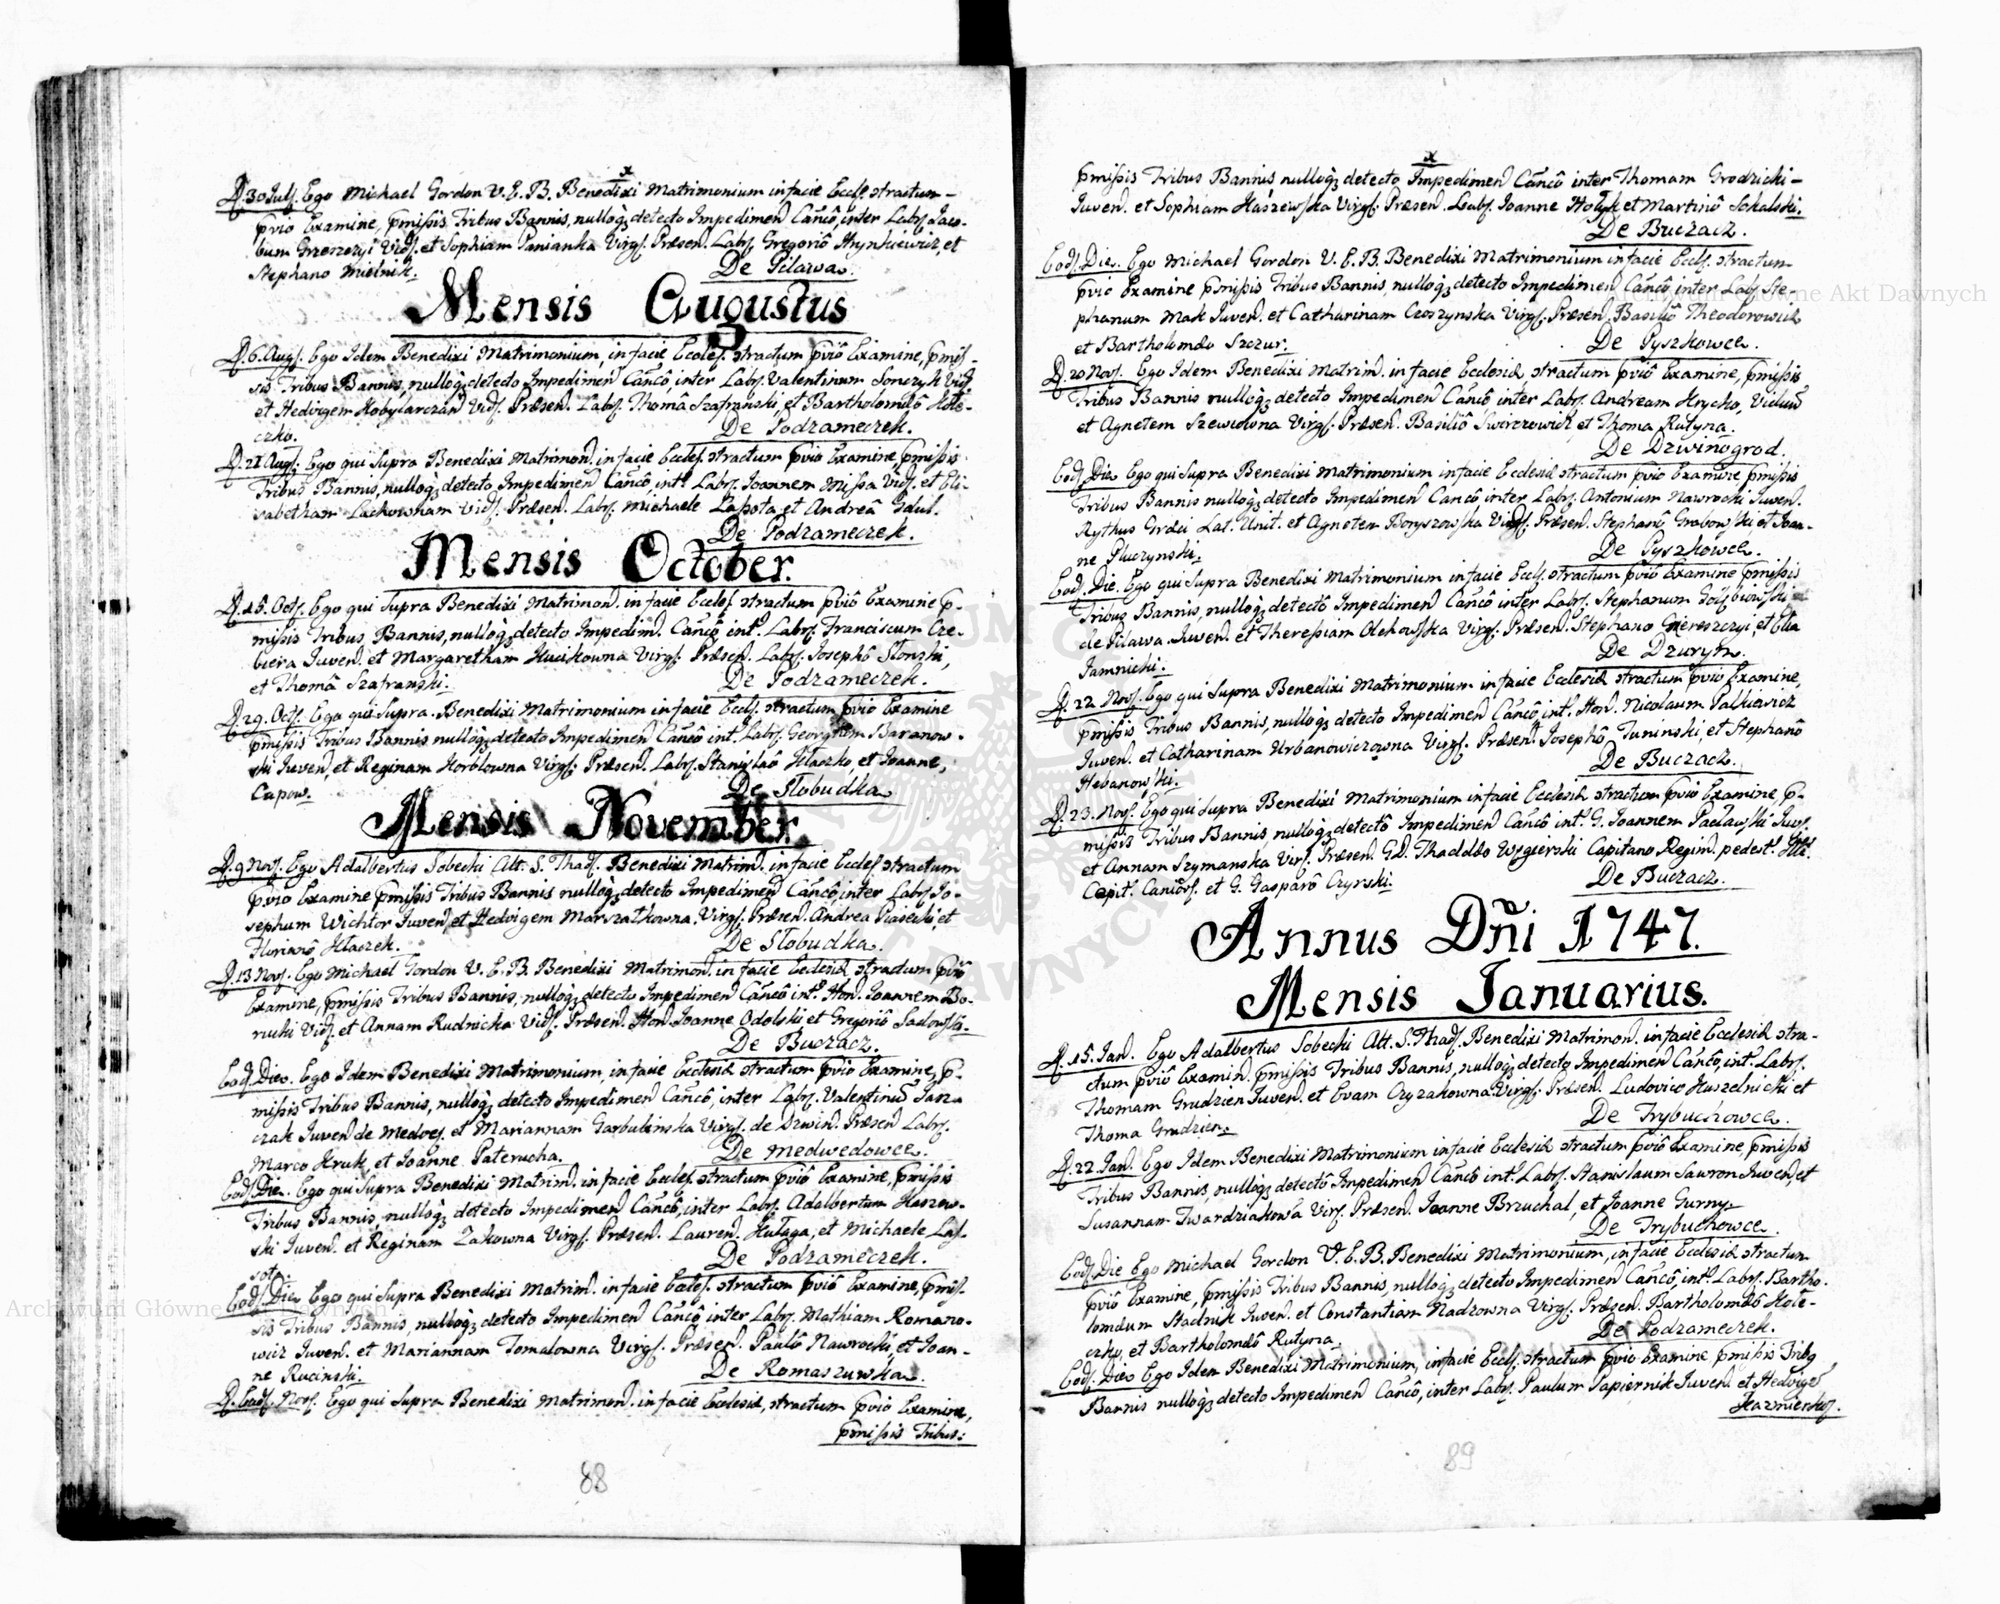 x
D. 30 Julj. Ego Michael Gordon V. E. B. Benedixi Matrimonium in facie Eccle. stractum
pvio Examine, pmissis Tribus Bannis, nulloq3 detecto Impedimen Canco, inter Labs. Jaco-
bum Grzeszczyi Vid. et Sophiam Panianka Virg. Præsen. Labs. Gregoriô Hrynkiewicz, et
Stephano Mielnik.
De Pilawa.
Mensis Augustus
D. 6. Aug. Ego Idem Benedixi Matrimonium, in facie Eccles. stractum pviô Examine, pmis-
sis Tribus Bannis, nulloq3 detecto Impedimen Cancô, inter Labs. Valentinum Sonczyk Vid.
et Hedvigem Kobylarczan Vid. Præsen. Labs. Thomâ Szafranski, et Bartholomæô Kote-
czko.
De Podzameczek.
D. 21 Aug. Ego qui Supra Benedixi Matrimon. in facie Eccles. stractum pviô Examine, pmissis
Tribus Bannis, nulloq3 detecto Impedimen Cancô int. Labs. Joannem Missa Vid. et Eli-
sabetham Lackownam Vid. Præsen. Labs. Michaele Lassota et Andreâ Gdul.
De Podzameczek.
Mensis October.
D. 15. Octs. Ego qui Supra Benedixi Matrimon. in facie Eccles. stractum pviô Examine p-
missis Tribus Bannis, nulloq3 detecto Impedim. Cancô int. Labs. Franciscum Cze-
biera Juven. et Margaretham Kucikowna Virg. Præsen. Labs. Josephô Slonski,
et Thomâ Szafranski.
De Podzameczek.
D. 29. Octs. Ego qui Supra Benedixi Matrimonium in facie Eccls. stractum pviô Examine
pmissis Tribus Bannis nulloq3 detecto Impedimen Cancô int. Labs. Georgium Baranow-
ski Juven. et Reginam Horblowna Virg. Præsen. Labs. Stanislaô Hlaczko, et Joanne,
Capow.
De Slobudka
Mensis November.
D. 9 Nov. Ego Adalbertus Sobecki Alt. S. Thad. Benedixi Matrim. in facie Eccles. stractum
pvio Examine pmissis Tribus Bannis nulloq3 detecto Impedimen Cancô, inter Labs. Jo-
sephum Wichtor Juven. et Hedvigem Marszalkowna. Virg. Præsen. Andrea Piasecki, et
Florianô Hlaczek.
De Slobudka.
D. 13 Nov. Ego Michael Gordon V. E. B. Benedixi Matrimon. in facie Ecclesiæ stractum pviô
Examine, pmissis Tribus Bannis, nulloq3 detecto Impedimen Cancô int. Hon. Joannem Bo-
rucki Vid. et Annam Rudnicka Vid. Præsen. Hon Joanne Odolski et Gregoriô Sadowski.
De Buczacz.
Eod. Die. Ego Idem Benedixi Matrimonium, in facie Ecclesiæ stractum pviô Examine, p-
missis Tribus Bannis, nulloq3 detecto Impedimen Cancô, inter Labs. Valentinû Jasz-
czak Juven de Medve. et Mariannam Garbulinska Virg. de Dzwin. Præsen Labs.
Marco Kruk, et Joanne Paterucha.
De Medwedowce.
Eod. Die. Ego qui Supra Benedixi Matrim. in facie Eccles. stractum pviô Examine, pmissis
Tribus Bannis, nulloq3 detecto Impedimen Cancô, inter Labs. Adalbertum Haszew-
ski Juven. et Reginam Zakowna Virg. Præsen. Lauren. Hulaga, et Michaele Las-
sota.
De Podzameczek.
Eod. Die Ego qui Supra Benedixi Matrim. in facie Eccles. stractum pviô Examine, pmis-
sis Tribus Bannis, nulloq3 detecto Impedimen Cancô inter Labs. Mathiam Romano-
wicz Juven. et Mariannam Tomalowna Virg. Præsen. Paulô Nawrocki, et Joan-
ne Rucinski.
De Romaszuwka.
D. Ead. Nov. Ego qui Supra Benedixi Matrimon. in facie Ecclesiæ, stractum pviô Examine,
pmissis Tribus:
88
x
pmissis Tribus Bannis nulloq3 detecto Impedimen Cancô inter Thomam Grodzicki
Juven. et Sophiam Haszewska Virg. Præsen. Labs. Joanne Holyk et Martinô Sokalski.
De Buczacz.
Eod. Die. Ego Michael Gordon V. E. B. Benedixi Matrimonium in facie Eccls. stractum
pvio Examine pmissis Tribus Bannis, nulloq3 detecto Impedimen Cancô, inter Labs. Ste-
phanum Mak Juven. et Catharinam Czoszynska Virg. Præsen. Basiliô Theodorowicz
et Bartholomæo Szczur.
De Pyszkowce.
D. 20 Nov. Ego Idem Benedixi Matrim. in facie Ecclesiæ stractum pviô Examine, pmissis
Tribus Bannis nulloq3 detecto Impedimen Cancô inter Labs. Andream Hrycko, Viduû
et Agnetem Szewcowna Virg. Præsen. Basiliô Swirczowicz et Thoma Rutyna.
De Dzwinogrod.
Eod. Die Ego qui Supra Benedixi Matrimonium in facie Ecclesiæ stractum pvio Examine pmissis
Tribus Bannis nulloq3 detecto Impedimen Cancô inter Labs. Antonium Nawrocki Juven.
Rythus Græci Lat. Unit. et Agnetem Boryszowska Virg. Præsen. Stephanô Grabowski, et Joan-
ne Pluczynski.
De Pyszkowce.
Eod. Die. Ego qui Supra Benedixi Matrimonium in facie Eccls. stractum pviô Examine pmissis
Tribus Bannis, nulloq3 detectô Impedimen Cancô inter Labs. Stephanum Golsbiowski
de Pilawa Juven. et Theressiam Olchowska Virg. Præsen. Stephano Gereszczyi, et Elia
Jamnicki.
De Dzuryn.
D. 22 Nov. Ego qui Supra Benedixi Matrimonium in facie Ecclesiæ stractum pviô Examine,
pmissis Tribus Bannis, nulloq3 detecto Impedimen Cancô int. Hon. Nicolaum Palkiewicz
Juven. et Catharinam Urbanowiczowna Virg. Præsen. Josephô Tuninski, et Stephanô
Hebanowski.
De Buczacz.
D. 23. Nov. Ego qui Supra Benedixi Matrimonium in facie Ecclesiæ stractum pviô Examine, p-
missis Tribus Bannis, nulloq3 detectô Impedimen Cancô int. G. Joannem Paclawski Juv.
et Annam Szymanska Virg. Præsen. GD. Thaddæo Wgierski Capitano Regim. pedest.
Capit. et G. Gasparô Czyrski.
De Buczacz.
Annus Dñi 1747.
Mensis Januarius.
D. 15. Jan. Ego Adalbertus Sobecki Alt. S. Thad. Benedixi Matrimon. in facie Ecclesiæ stra-
ctum pviô Examin. pmissis Tribus Bannis, nulloq3 detecto Impedimen Cancô, int. Labs.
Thomam Grudzien Juven. et Evam Czyzakowna Virg. Præsen. Ludovico Kuszelnicki et
Thoma Grudzien.
De Trybuchowce.
D. 22. Jan. Ego Idem Benedixi Matrimonium in facie Ecclesiæ stractum pviô Examine, pmissis
Tribus Bannis, nulloq3 detectô Impedimen Cancô int. Labs. Stanislaum Sawron Juven, et
Susannam Twardziakowa Vir. Præsen. Joanne Brzuchal, et Joanne Gurny.
De Trybuchowce.
Eod. Die Ego Michael Gordon V. E. B. Benedixi Matrimonium, in facie Ecclesiæ stractum
pviô Examine, pmissis Tribus Bannis, nulloq3 detecto Impedimen Cancô, int. Labs. Bartho-
lomæum Stadnik Juven. et Constantiam Nadzowna Virg. Præsen. Bartholomæô Kote-
czko, et Bartholomæô Rutyna.
De Podzameczek.
Eod. Die Ego Idem Benedixi Matrimonium, in facie Eccls. stractum pviô Examine pmissis Trib9
Bannis nulloq3 detecto Impedimen Cancô, inter Labs. Paulum Papiernik Juven. et Hedvigê
Kazmierkos.
89
Archiwum Główne Akt Dawnych
Archiwum Główne Akt Dawnych